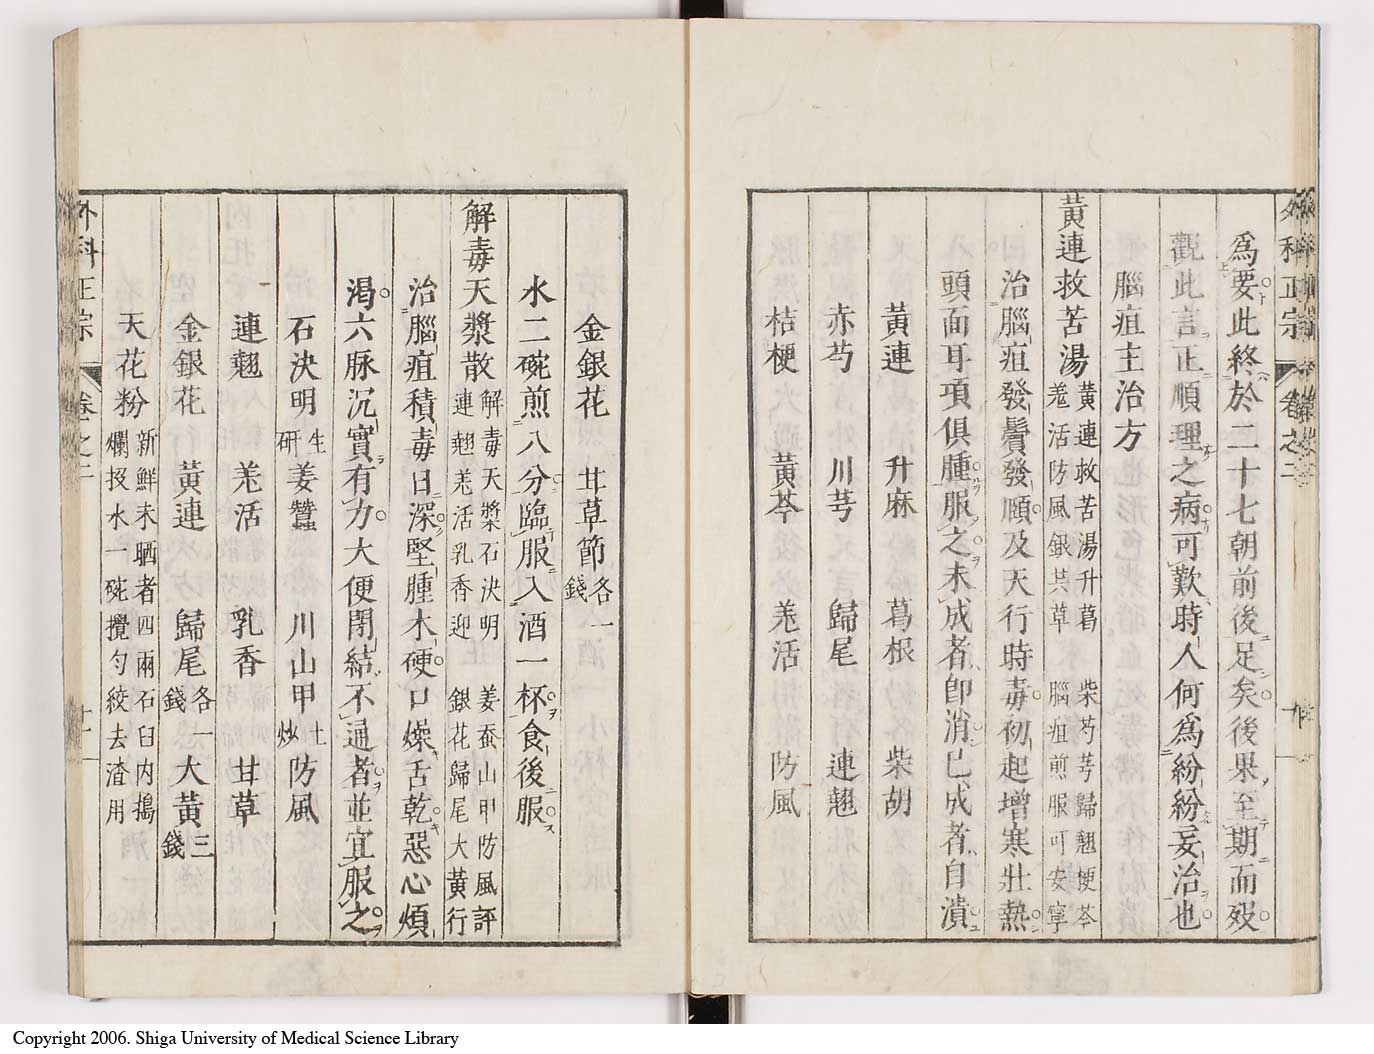 外科正宗 卷之二
爲要此終於二十七朝前後足矣後果至期而歿
觀此言正順理之病可歎時人何爲紛紛妄治也
腦疽主治方
黃連救苦湯 黃連救苦湯升葛 柴芍芎歸翹梗芩
羗活防風銀共草 腦疽煎服可安寧
治腦疽發鬢發頤及天行時毒初起增寒壯熱
頭面耳項俱腫服之未成者卽消已成者自潰
黃連 升麻 葛根 柴胡
赤芍 川芎 歸尾 連翹
桔梗 黃芩 羗活 防風
金銀花 甘草節各一錢
水二碗煎八分臨服入酒一杯食後服
解毒天漿散 解毒天漿石決明 姜蚕山甲防風評
連翹羗活乳香迎 銀花歸尾大黃行
治腦疽積毒日深堅腫木硬口燥舌乾惡心煩
渴六脉沉實有力大便閉結不通者並宜服之
石決明生研 姜蠶 川山甲土炒 防風
連翹 羗活 乳香 甘草
金銀花 黃連 歸尾各一錢 大黃三錢
天花粉 新鮮未晒者四兩石臼内搗
爛投水一碗攪勻絞去渣用
外科正宗 卷之二 十一
Copyright 2006. Shiga University of Medical Science Library